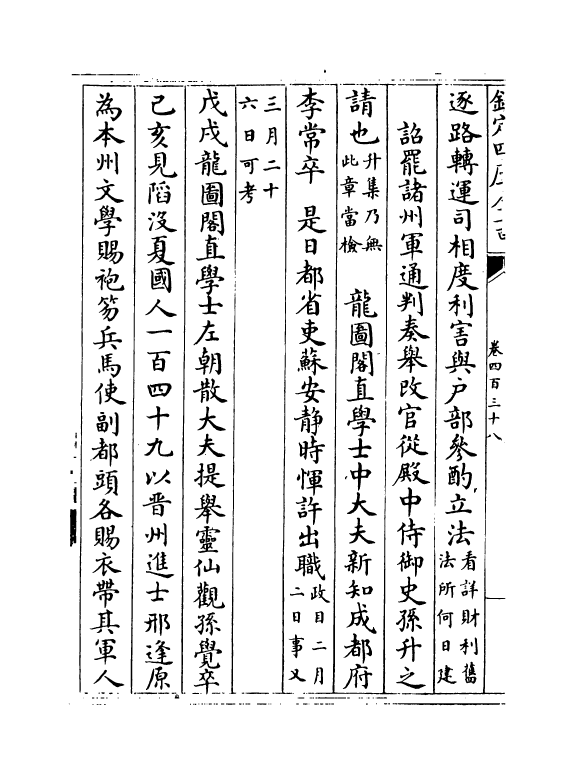 欽定四庫全書
卷四百三十八
逐路轉運司相度利害與户部參酌立法看詳財利舊
法所何日建
詔罷諸州軍通判奏舉改官從殿中侍御史孫升之
請也升集乃無
此章當檢
龍圖閣直學士中大夫新知成都府
李常卒　是日都省吏蘇安静時惲許出職政目二月
二日事又
三月二十
六日可考
戊戌龍圖閣直學士左朝散大夫提舉靈仙觀孫覺卒
己亥見䧟没夏國人一百四十九以晋州進士邢逢原
為本州文學賜袍笏兵馬使副都頭各賜衣帶其軍人